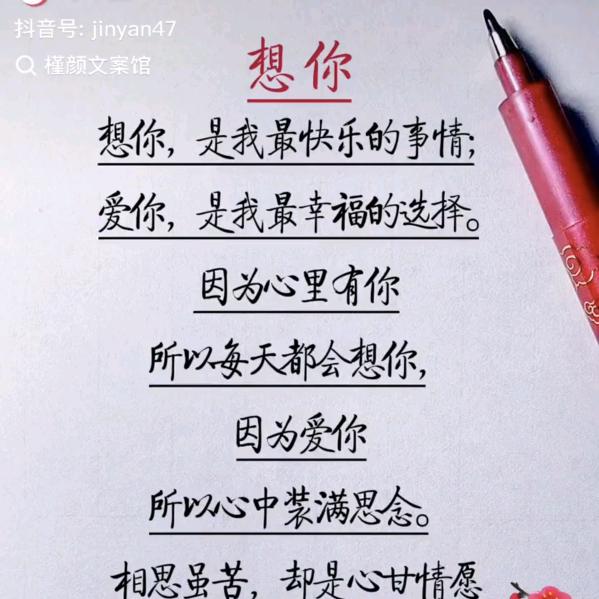 抖音号: jinyan47
槿颜文案馆
想你
想你，是我最快乐的事情；
爱你，是我最幸福的选择。
因为心里有你
所以每天都会想你，
因为爱你
所以心中装满思念。
相思虽苦，却是心甘情愿